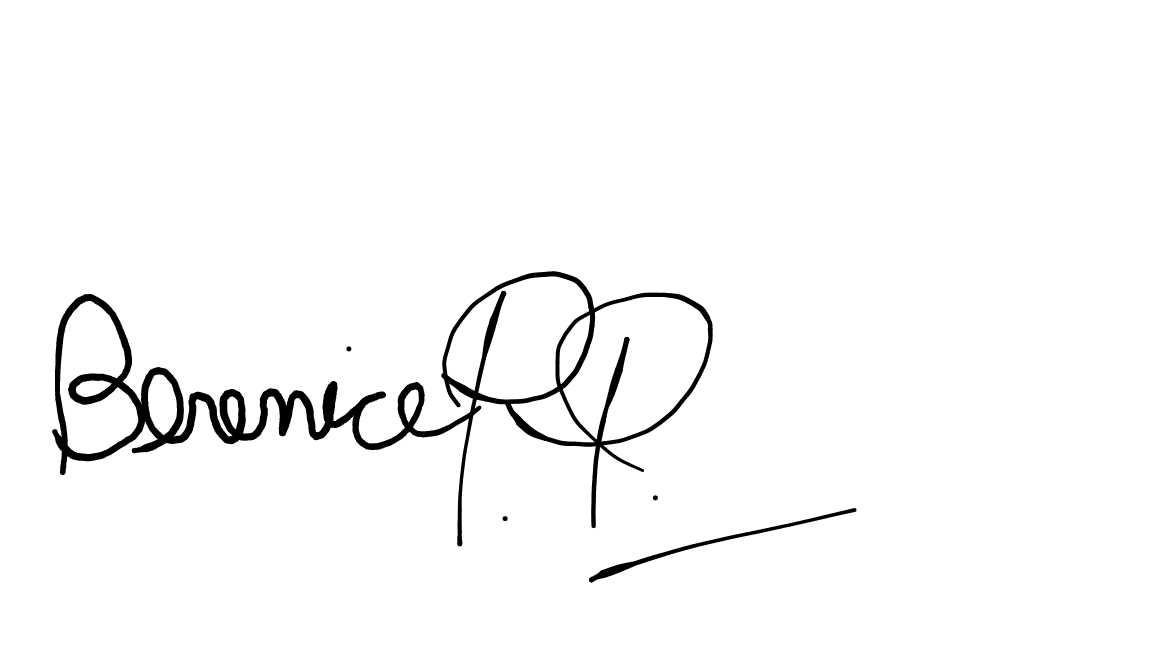 Berenice P. P.